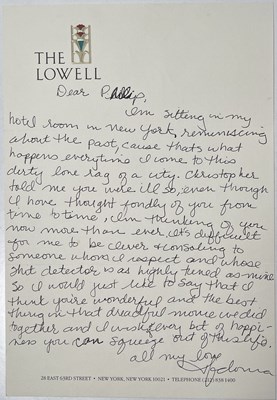 THE
LOWELL
Dear Phillip,
I'm sitting in my
hotel room in New York, reminiscing
about the past, cause that's what
happens everytime I come to this
dirty lone rag of a city. Christopher
told me you were ill so, even though
I have thought fondly of you from
time to time, I'm thinking of you
now more than ever. It's difficult
for me to be clever + consoling to
someone whom I respect and whose
shit detector is as highly tuned as mine
So I would just like to say that I
think you're wonderful and the best
thing in that dreadful movie we did
together and I wish every bit of happi-
ness you can squeeze out of this life.
all my love
28 EAST 63RD STREET • NEW YORK, NEW YORK 10021 • TELEPHONE (212) 838 1400